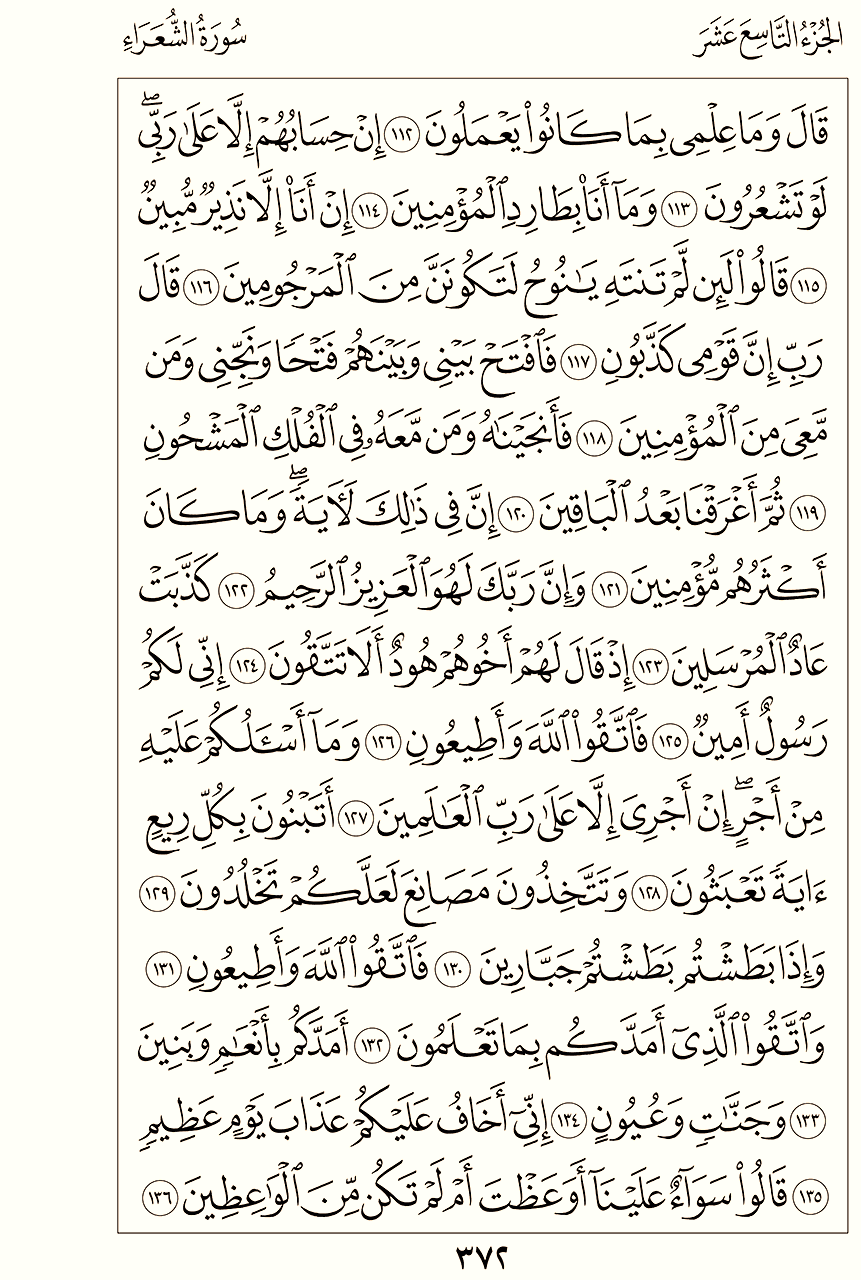 الجُزْءُ التَّاسِعَ عَشَرَ
سُورَةُ الشُّعَرَاءِ
قَالَ وَمَا عِلْمِى بِمَا كَانُوا۟ يَعْمَلُونَ ١١٢ إِنْ حِسَابُهُمْ إِلَّا عَلَىٰ رَبِّىۖ
لَوْ تَشْعُرُونَ ١١٣ وَمَآ أَنَا۠ بِطَارِدِ ٱلْمُؤْمِنِينَ ١١٤ إِنْ أَنَا۠ إِلَّا نَذِيرٌ مُّبِينٌ
١١٥ قَالُوا۟ لَئِن لَّمْ تَنتَهِ يَـٰنُوحُ لَتَكُونَنَّ مِنَ ٱلْمَرْجُومِينَ ١١٦ قَالَ
رَبِّ إِنَّ قَوْمِى كَذَّبُونِ ١١٧ فَٱفْتَحْ بَيْنِى وَبَيْنَهُمْ فَتْحًا وَنَجِّنِى وَمَن
مَّعِىَ مِنَ ٱلْمُؤْمِنِينَ ١١٨ فَأَنجَيْنَـٰهُ وَمَن مَّعَهُۥ فِى ٱلْفُلْكِ ٱلْمَشْحُونِ
١١٩ ثُمَّ أَغْرَقْنَا بَعْدُ ٱلْبَاقِينَ ١٢٠ إِنَّ فِى ذَٰلِكَ لَـَٔايَةًۖ وَمَا كَانَ
أَكْثَرُهُم مُّؤْمِنِينَ ١٢١ وَإِنَّ رَبَّكَ لَهُوَ ٱلْعَزِيزُ ٱلرَّحِيمُ ١٢٢ كَذَّبَتْ
عَادٌ ٱلْمُرْسَلِينَ ١٢٣ إِذْ قَالَ لَهُمْ أَخُوهُمْ هُودٌ أَلَا تَتَّقُونَ ١٢٤ إِنِّى لَكُمْ
رَسُولٌ أَمِينٌ ١٢٥ فَٱتَّقُوا۟ ٱللَّهَ وَأَطِيعُونِ ١٢٦ وَمَآ أَسْـَٔلُكُمْ عَلَيْهِ
مِنْ أَجْرٍۖ إِنْ أَجْرِىَ إِلَّا عَلَىٰ رَبِّ ٱلْعَـٰلَمِينَ ١٢٧ أَتَبْنُونَ بِكُلِّ رِيعٍ
ءَايَةً تَعْبَثُونَ ١٢٨ وَتَتَّخِذُونَ مَصَانِعَ لَعَلَّكُمْ تَخْلُدُونَ ١٢٩
وَإِذَا بَطَشْتُم بَطَشْتُمْ جَبَّارِينَ ١٣٠ فَٱتَّقُوا۟ ٱللَّهَ وَأَطِيعُونِ ١٣١
وَٱتَّقُوا۟ ٱلَّذِىٓ أَمَدَّكُم بِمَا تَعْلَمُونَ ١٣٢ أَمَدَّكُم بِأَنْعَـٰمٍ وَبَنِينَ
١٣٣ وَجَنَّـٰتٍ وَعُيُونٍ ١٣٤ إِنِّىٓ أَخَافُ عَلَيْكُمْ عَذَابَ يَوْمٍ عَظِيمٍ
١٣٥ قَالُوا۟ سَوَآءٌ عَلَيْنَآ أَوَعَظْتَ أَمْ لَمْ تَكُن مِّنَ ٱلْوَٰعِظِينَ ١٣٦
٣٧٢